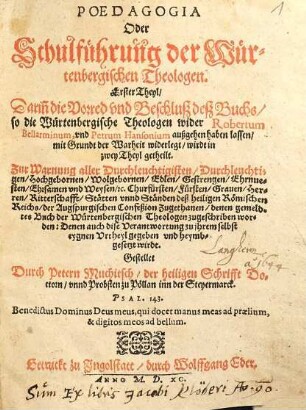 POEDAGOGIA
Oder
Schulführung der Wür-
tenbergischen Theologen.
Erster Theyl/
Dariñ die Vorred vnd Beschluß deß Buchs/
so die Würtenbergische Theologen wider Robertum
Bellarminum, vnd Petrum Hansonium außgehen haben lassen/
mit Grundt der Warheit widerlegt/ wirdt in
zwey Theyl getheilt.
Zur Warnung aller Durchleuchtigisten/ Durchleuchti-
gen/ Hochgebornen/ Wolgebornen/ Edlen/ Gestrengen/ Ehrnue-
sten/ Ehrsamen vnd Weysen/ꝛc. Churfürsten/ Fürsten/ Grauen/ Her-
ren/ Ritterschafft/ Stätten vnnd Ständen deß heiligen Römischen
Reichs/ der Augspurgischen Confession Zugethanen/ denen gemeld-
tes Buch der Würtenbergischen Theologen zugeschriben wor-
den: Denen auch dise Verantwortung zu jhrem selbst
eygnen Vrtheyl gegeben vnd heymb-
gesetzt wirdt.
Gestellet
Durch Petern Muchitsch/ der heiligen Schrifft Do-
ctorn/ vnnd Probsten zu Pöllan inn der Steyrmarck.
PSAL. 143.
Benedictus Dominus Deus meus, qui docet manus meas ad prælium,
& digitos meos ad bellum.
Getruckt zu Ingolstatt/ durch Wolffgang Eder,
ANNO M. D. XC.
Sum Ex libris Jacobi